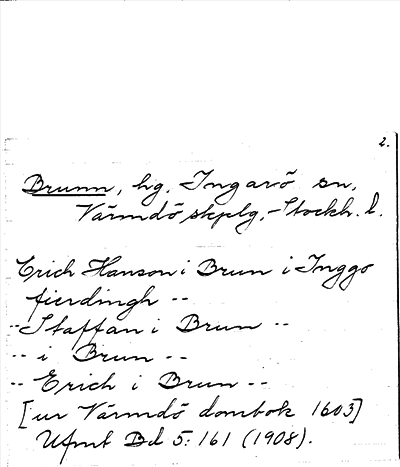 2.
Brunn, hg, Ingarö sn,
Värmdö skplg, Stockh. l.
Erich Hanson i Brun i Inggö
fierdingh --
-- Staffan i Brun --
-- i Brun --
-- Erich i Brun --
[ur Värmdö dombok 1603]
Ufmt Bd 5: 161 (1908).